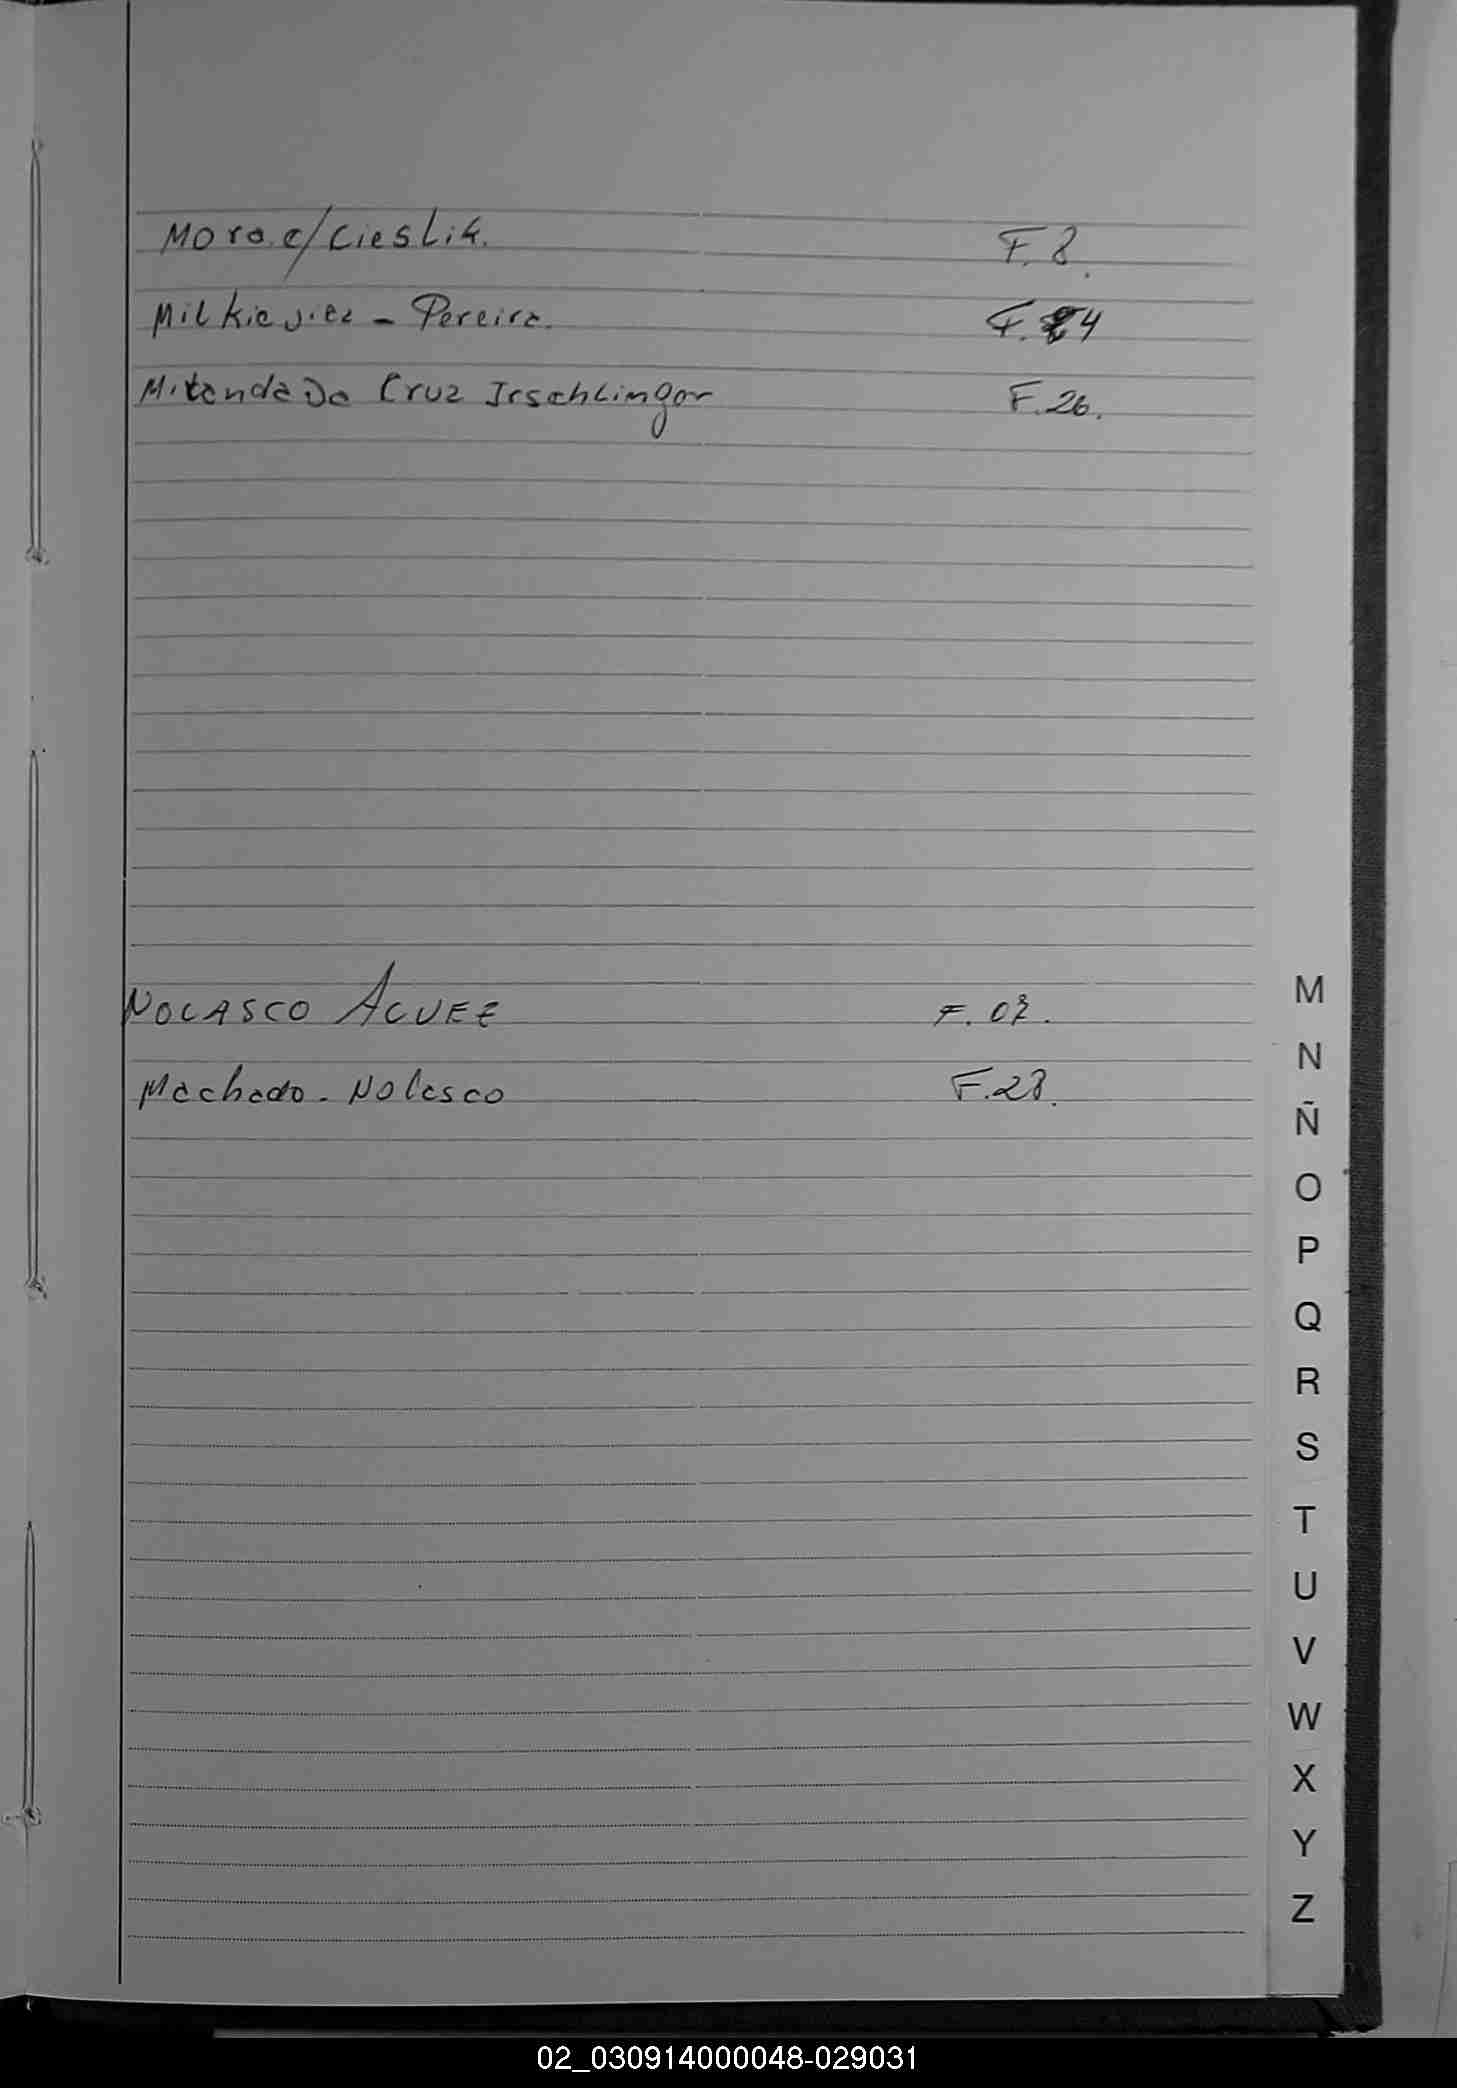 Mora c/ Cieslik. F. 8.
Milkieviez - Pereira. F. 4
Miranda Da Cruz Irschlinger F. 26.
NOLASCO ALVEZ F. 07.
Machado - Nolasco F. 28.
M
N
Ñ
O
P
Q
R
S
T
U
V
W
X
Y
Z
02_030914000048-029031